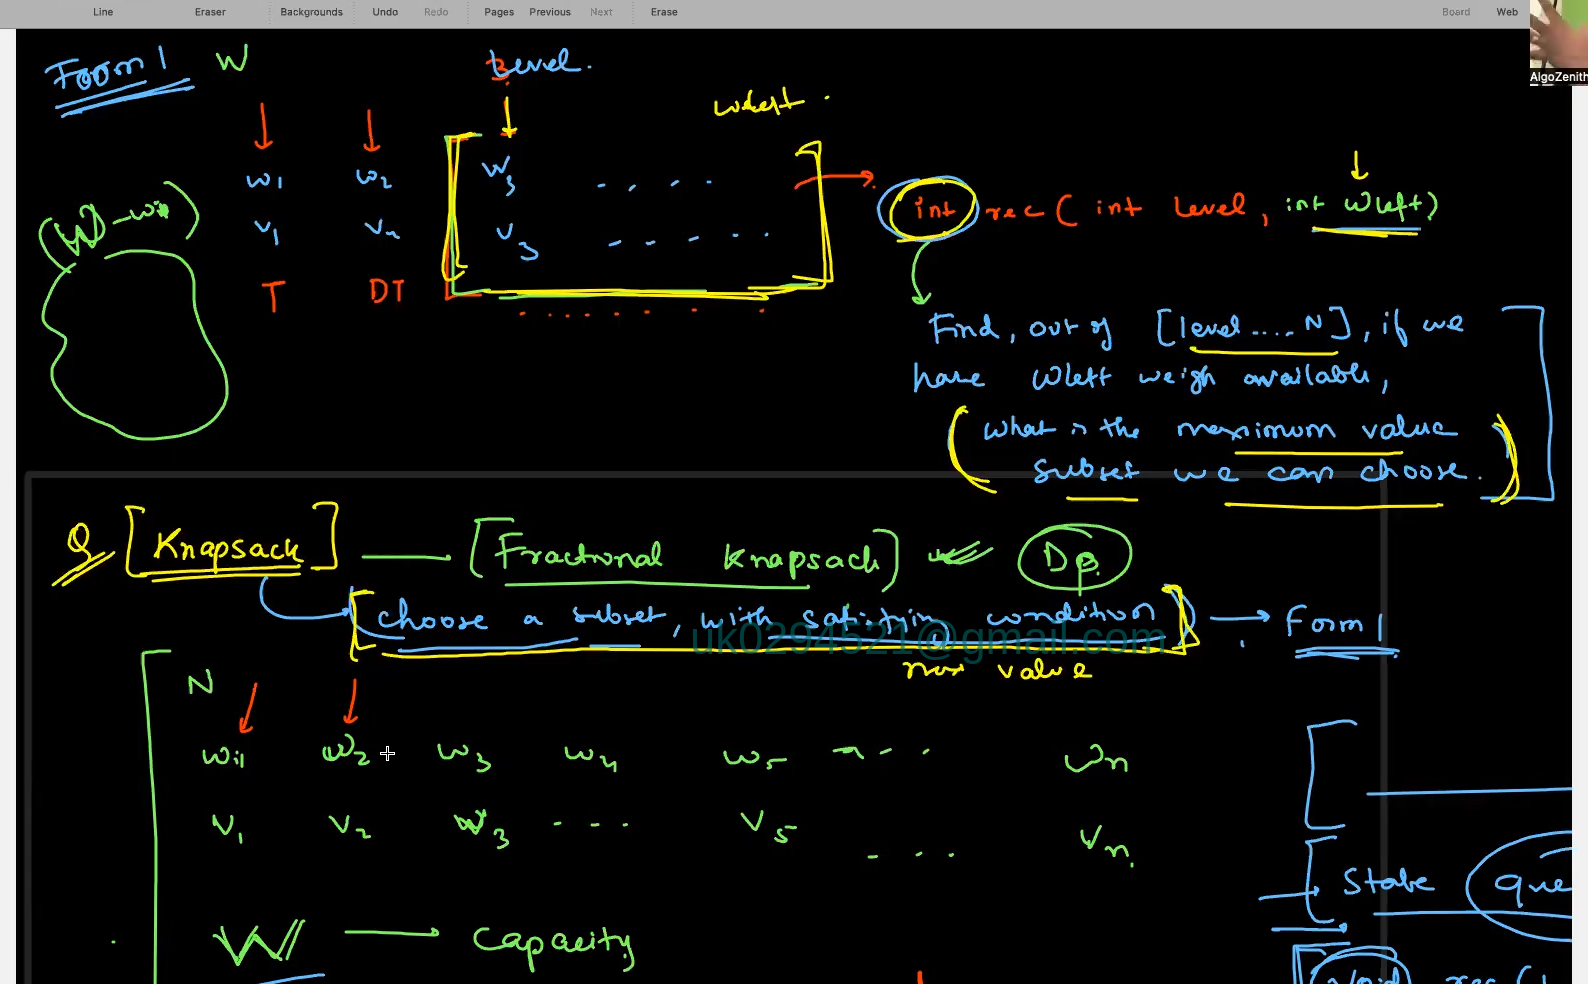 Line Eraser Backgrounds Undo Redo Pages Previous Next Erase Board Web
AlgoZenith
Form 1 W
Level.
Wleft
w1 w2 w3 . . . .
v1 v2 v3 . . . . .
T DT
int rec ( int level, int Wleft)
Find, out of [level .... N], if we
have Wleft weigh available,
(what is the maximum value
subset we can choose.)
Q [Knapsack] [Fractional Knapsack] Dp
[choose a subset, with satisfying condition] → Form 1
uk0294521@gmail.com
max value
N
w1 w2 w3 w4 w5 - . . wn
v1 v2 v3 . . . v5 . . . vn
W → Capacity
State Que